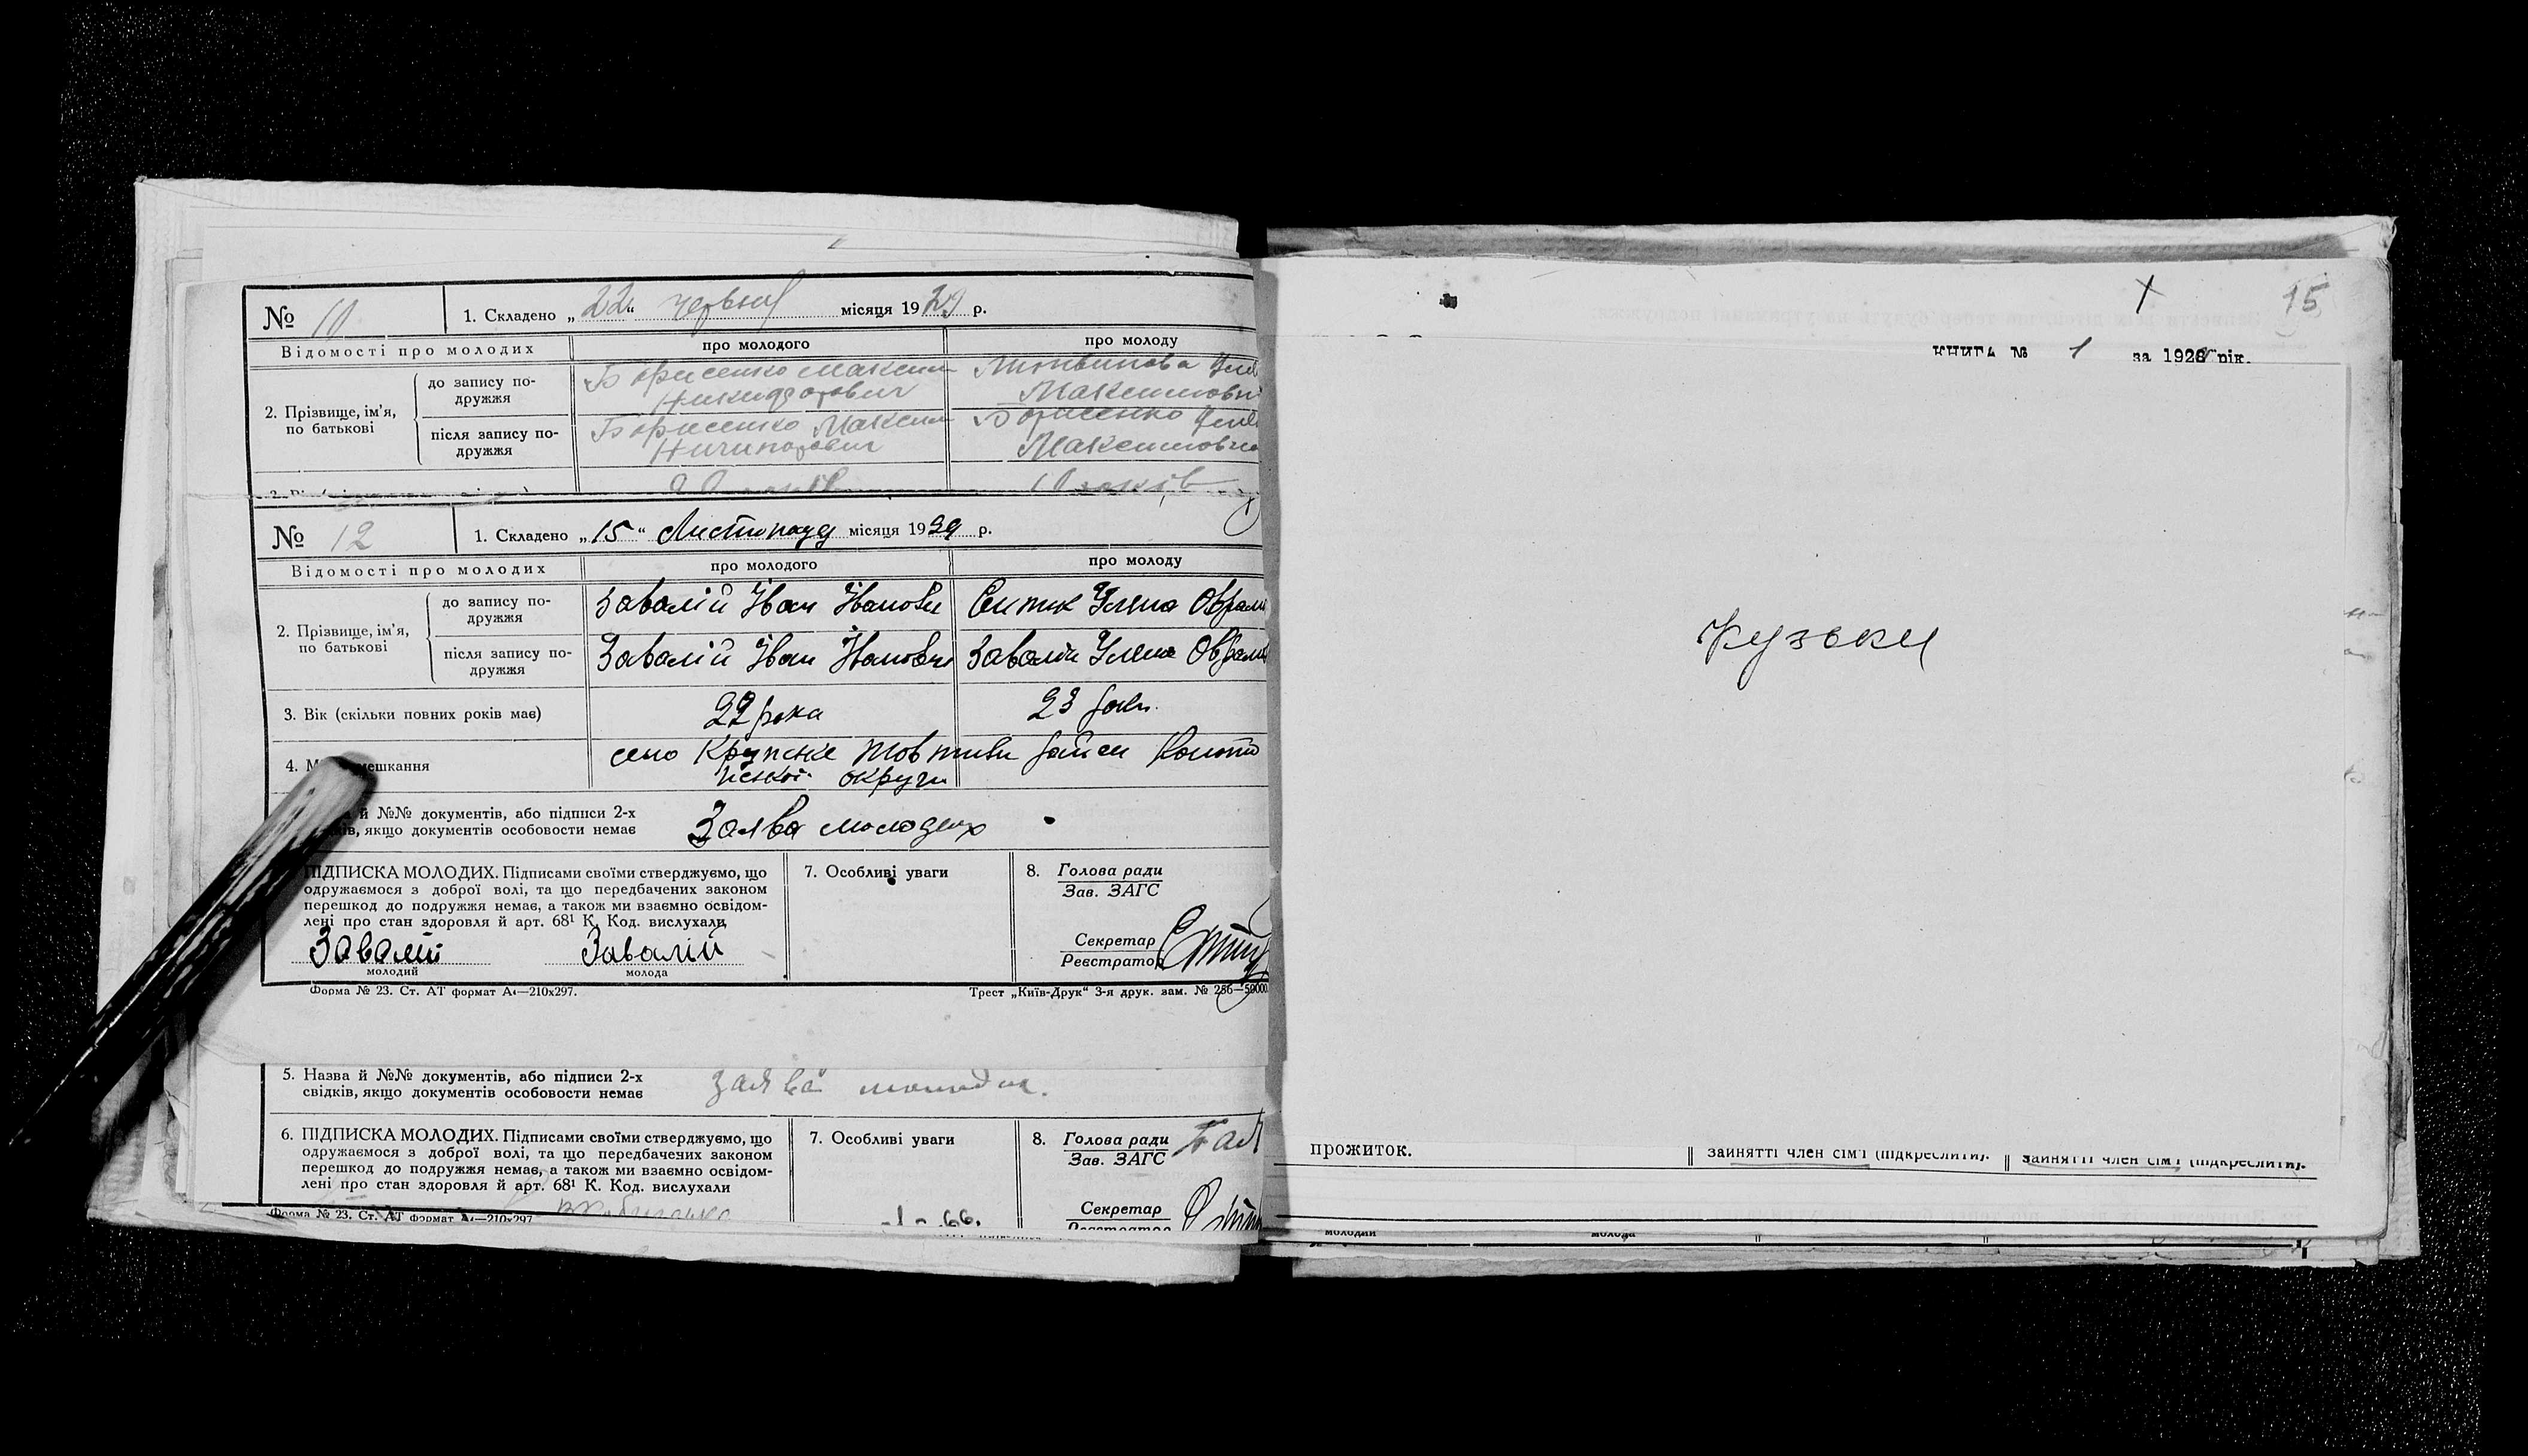 № 10
1. Складено „22“ червня місяця 1929 р.
Відомості про молодих
про молодого
про молоду
2. Прізвище, ім'я,
по батькові
до запису по-
дружжя
Борисенко Максим
Никифорович
Максимовн
після запису по-
дружжя
Борисенко Максим
Ничипорович
Борисенко
Максимовна
років
№ 12
1. Складено „15“ Листопаду місяця 1929 р.
Відомості про молодих
про молодого
про молоду
2. Прізвище, ім'я,
по батькові
до запису по-
дружжя
Завалій Іван Іванови
Уляна Оврам
після запису по-
дружжя
Завалій Іван Іванович
Завалій Уляна Оврам
3. Вік (скільки повних років має)
22 рока
23 роки
4. М мешкання
село Крупське району Коното
пської округи
й №№ документів, або підписи 2-х
ів, якщо документів особовости немає
Заява молодих
ПІДПИСКА МОЛОДИХ. Підписами своїми стверджуємо, що
одружаємося з доброї волі, та що передбачених законом
перешкод до подружжя немає, а також ми взаємно освідом-
лені про стан здоров'я й арт. 68¹ К. Код. вислухали
Завалій
Завалій
молодий
молода
7. Особливі уваги
8. Голова ради
Зав. ЗАГС
Секретар
Реєстратор
Форма № 23. Ст. АТ формат А₄—210х297.
Трест „Київ-Друк“ 3-я друк. зам. № 256—50000
5. Назва й №№ документів, або підписи 2-х
свідків, якщо документів особовости немає
заява молодих.
6. ПІДПИСКА МОЛОДИХ. Підписами своїми стверджуємо, що
одружаємося з доброї волі, та що передбачених законом
перешкод до подружжя немає, а також ми взаємно освідом-
лені про стан здоров'я й арт. 68¹ К. Код. вислухали
7. Особливі уваги
8. Голова ради
Зав. ЗАГС
Секретар
Реєстратор
Форма № 23. Ст. АТ формат А₄—210х297
15
КНИГА № 1 за 1929 рік.
Кузьки
прожиток.
зайнятті член сім'ї (підкреслити).
зайнятті член сім'ї (підкреслити).
молодий
молода